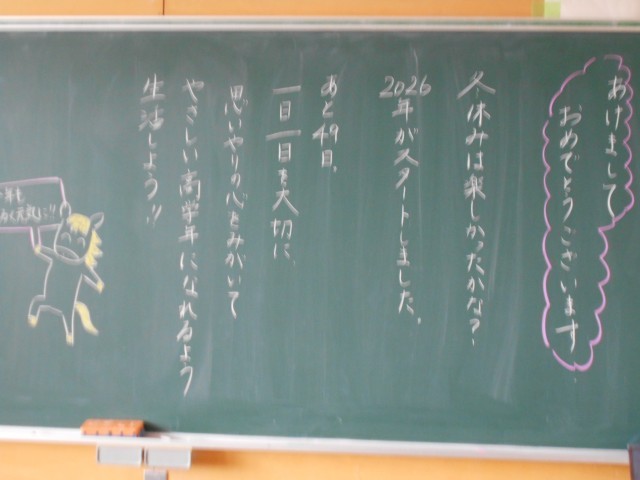 あけまして
おめでとうございます
冬休みは楽しかったかな?
2026年がスタートしました。
あと49日。
一日一日を大切に、
思いやりの心をみがいて
やさしい高学年になれるよう
生活しよう!!
元気に!!